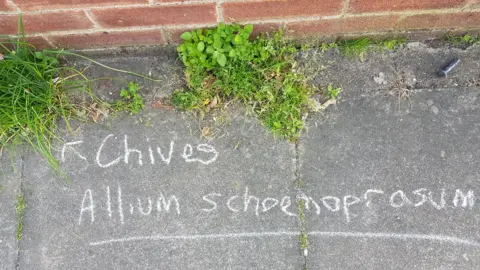 Chives
Allium schoenoprasum